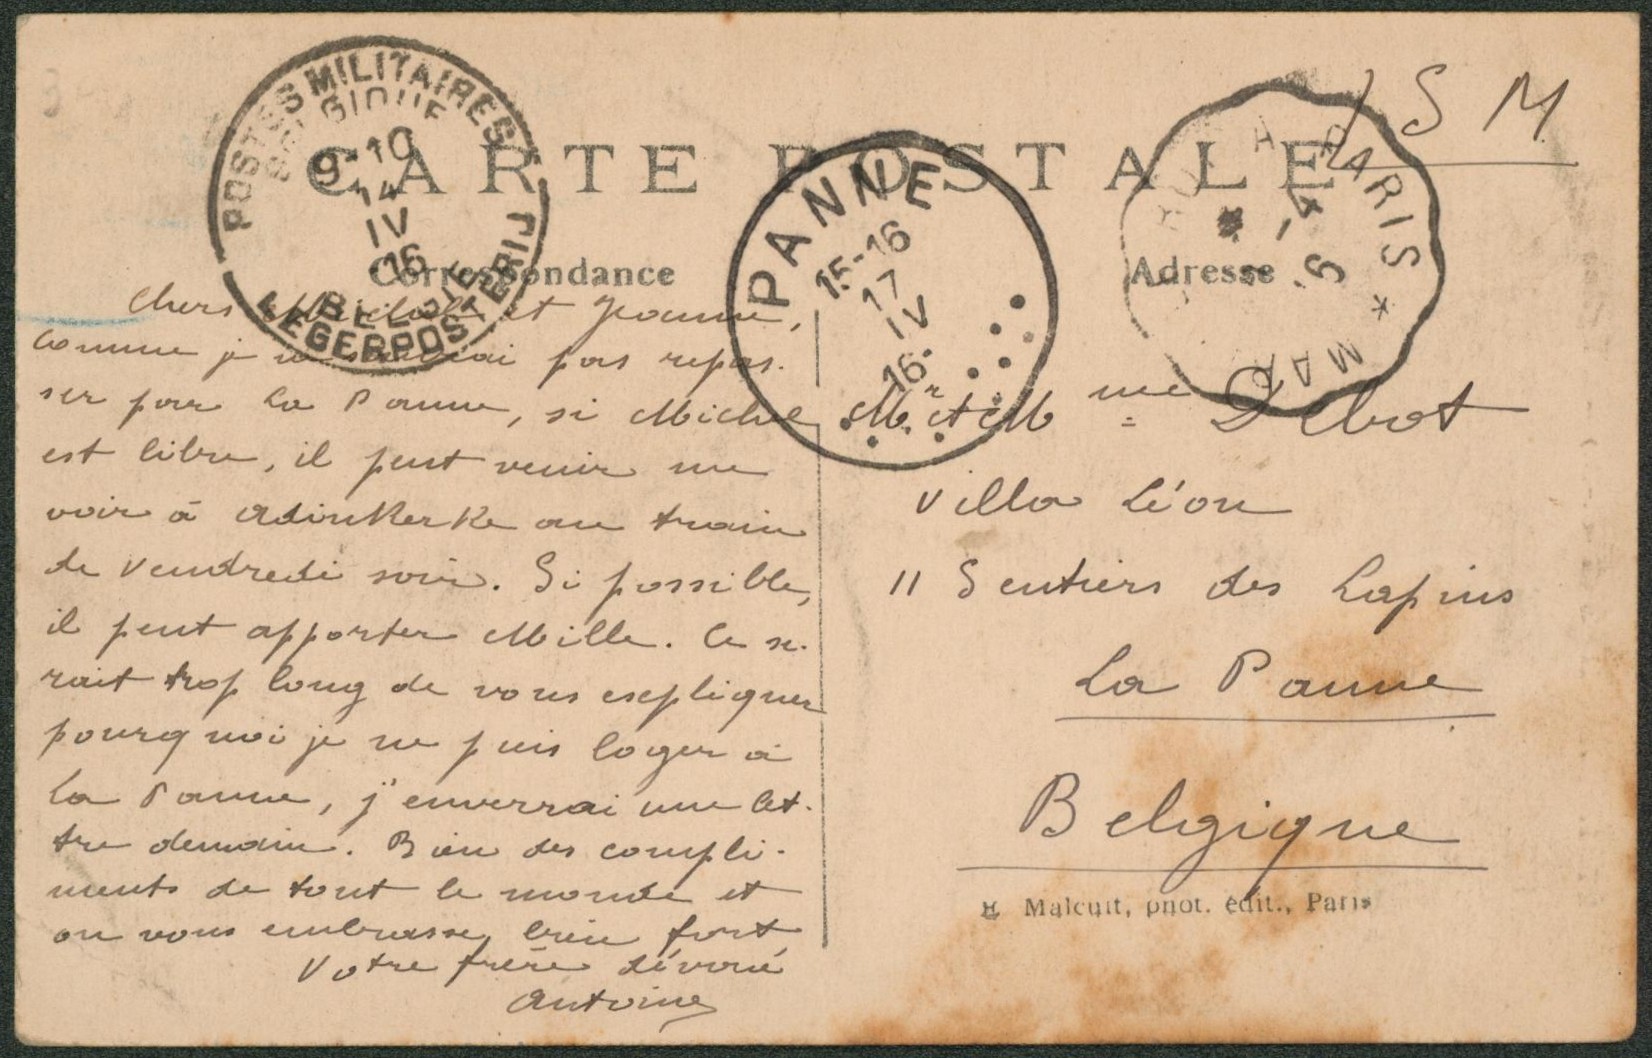 S M
CARTE POSTALE
Correspondance
Adresse
POSTES MILITAIRES
BELGIQUE
9-10
14
IV
16
BELGIE
LEGERPOSTERIJ
PANNE
15-16
17
IV
16
A PARIS *
Chers Michel et Jeanne,
Comme je ne saurai pas repas-
ser par La Panne, si Michel
est libre, il peut venir me
voir à Adinkerke au train
de vendredi soir. Si possible,
il peut apporter Mille. Ce se-
rait trop long de vous expliquer
pourquoi je ne puis loger à
La Panne, j'enverrai une let-
tre demain. Bien des compli-
ments de tout le monde et
on vous embrasse bien fort
Votre frère dévoué
Antoine
Mr et Mme Delbrot
Villa Léon
11 Sentiers des Lapins
La Panne
Belgique
H Malcuit, phot. édit., Paris